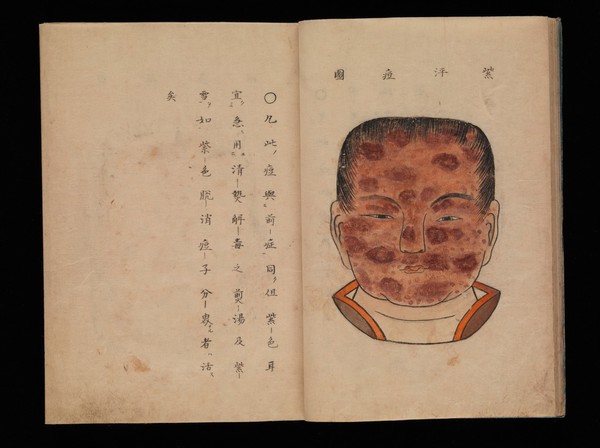 紫泙症圖
○凡此症與前症同但紫色耳
宜急用清熱解毒之煎湯及紫
雪如紫色脫消痘子分界者活
矣